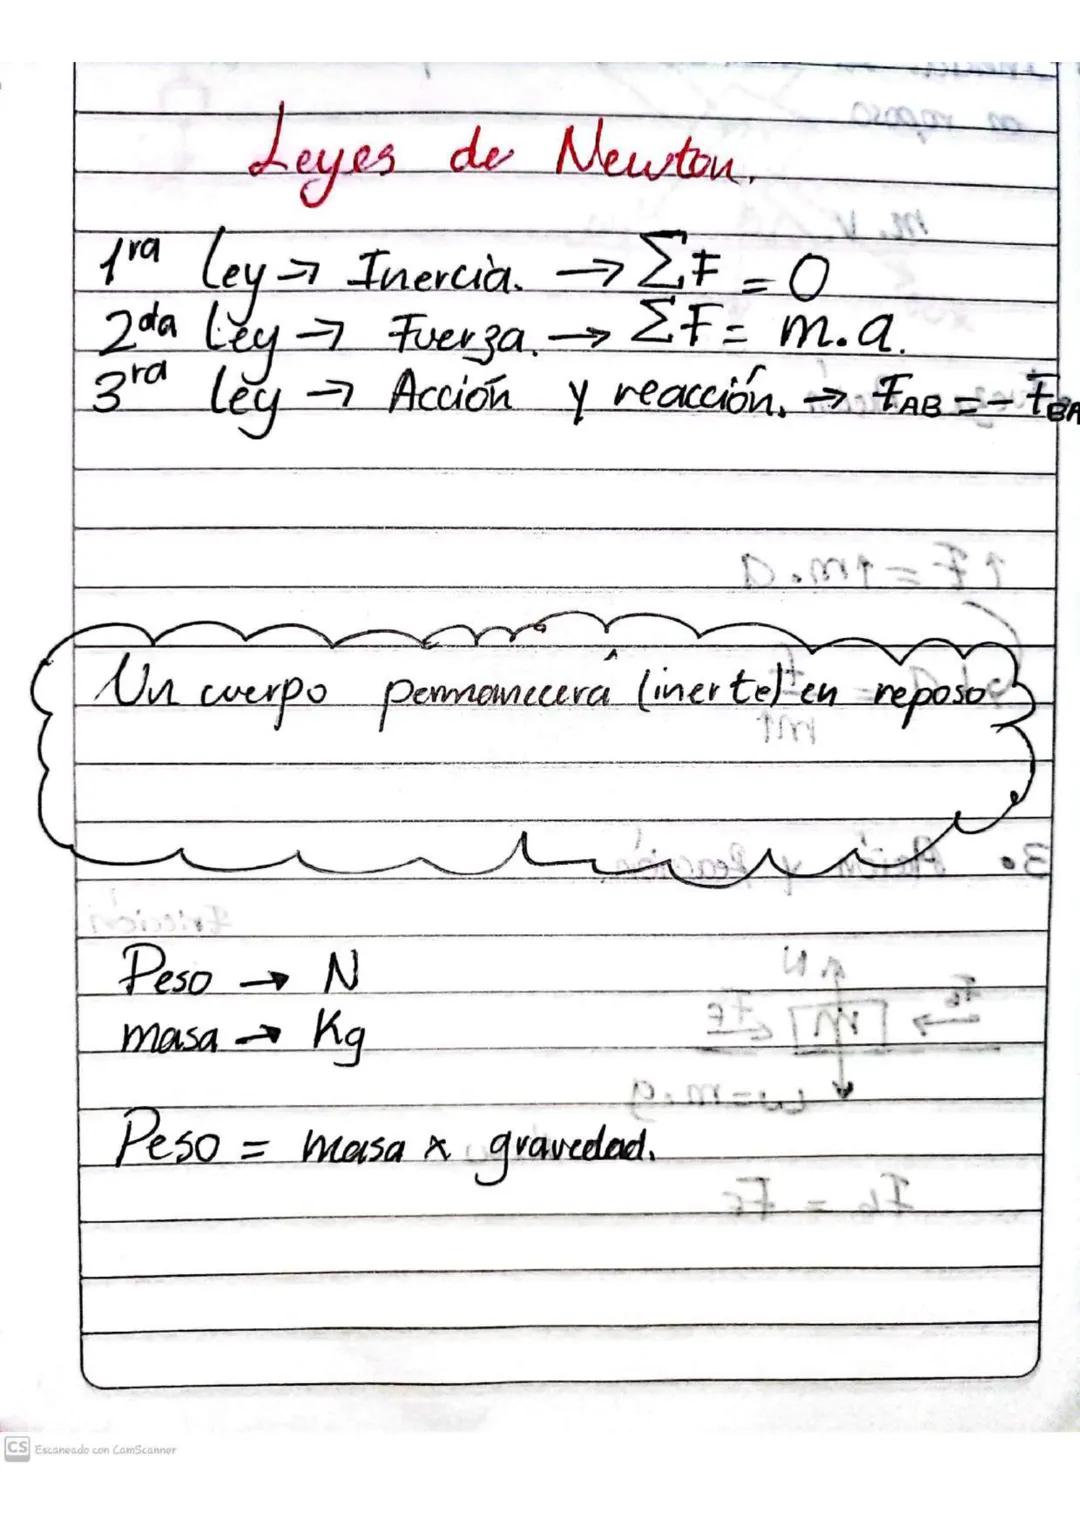 Leyes de Newton.
1ra Ley → Inercia. → ΣF = 0
2da Ley → Fuerza. → ΣF = m.a.
3ra Ley → Acción y reacción. → FAB = - FBA
Un cuerpo permanecerá (inerte) en reposo
Peso → N
masa → Kg
Peso = masa x gravedad.
CS Escaneado con CamScanner